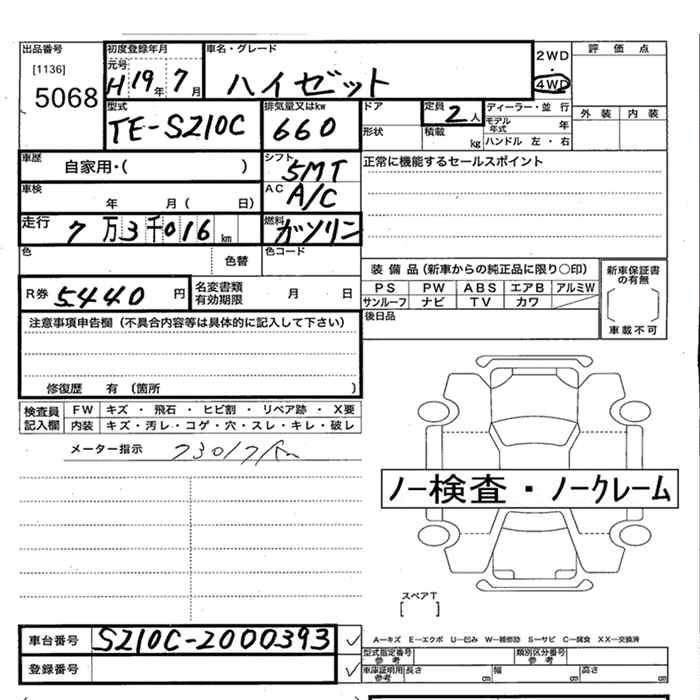 出品番号 初度登録年月 車名・グレード 2WD 評価点
[1136] 元号 ・
5068 H19年7月 ハイゼット 4WD
型式 排気量又はkw ドア 定員 2人 ディーラー・並 行 外装 内装
TE-S210C 660 形状 積載 kg モデル年式 年
ハンドル 左・右
車歴 自家用・( ) シフト 5MT 正常に機能するセールスポイント
車検 年 月( 日) AC A/C
走行 7万3千016km 燃料 ガソリン
色 色替 色コード
装備品(新車からの純正品に限り○印) 新車保証書の有無
R券 5440円 名変書類有効期限 月 日 PS PW ABS エアB アルミW
サンルーフ ナビ TV カワ
注意事項申告欄(不具合内容等は具体的に記入して下さい) 後日品 車載不可
修復歴 有 (箇所 )
検査員記入欄 FW キズ・飛石・ヒビ割・リペア跡・X要
内装 キズ・汚レ・コゲ・穴・スレ・キレ・破レ
メーター指示 73017km
ノー検査・ノークレーム
スペアT
[ ]
車台番号 S210C-2000393 ✓ A–キズ E–エクボ U–凹み W–補修跡 S–サビ C–腐食 XX–交換済
型式指定番号 参考 類別区分番号 参考
登録番号 ✓ 車庫証明用 参考 長さ cm 幅 cm 高さ cm